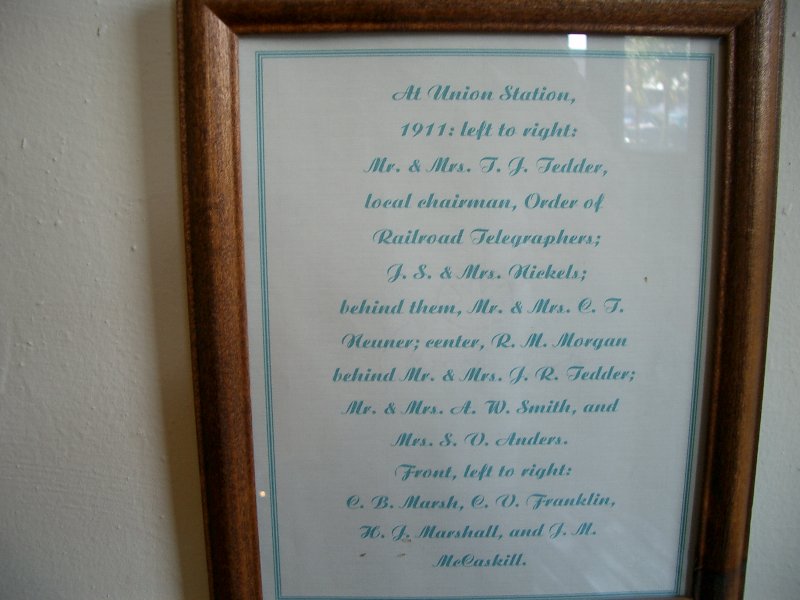 At Union Station,
1911: left to right:
Mr. & Mrs. T. J. Tedder,
local chairman, Order of
Railroad Telegraphers;
J. S. & Mrs. Nickels;
behind them, Mr. & Mrs. C. T.
Neuner; center, R. M. Morgan
behind Mr. & Mrs. J. R. Tedder;
Mr. & Mrs. A. W. Smith, and
Mrs. S. V. Anders.
Front, left to right:
C. B. Marsh, C. V. Franklin,
H. J. Marshall, and J. M.
McCaskill.